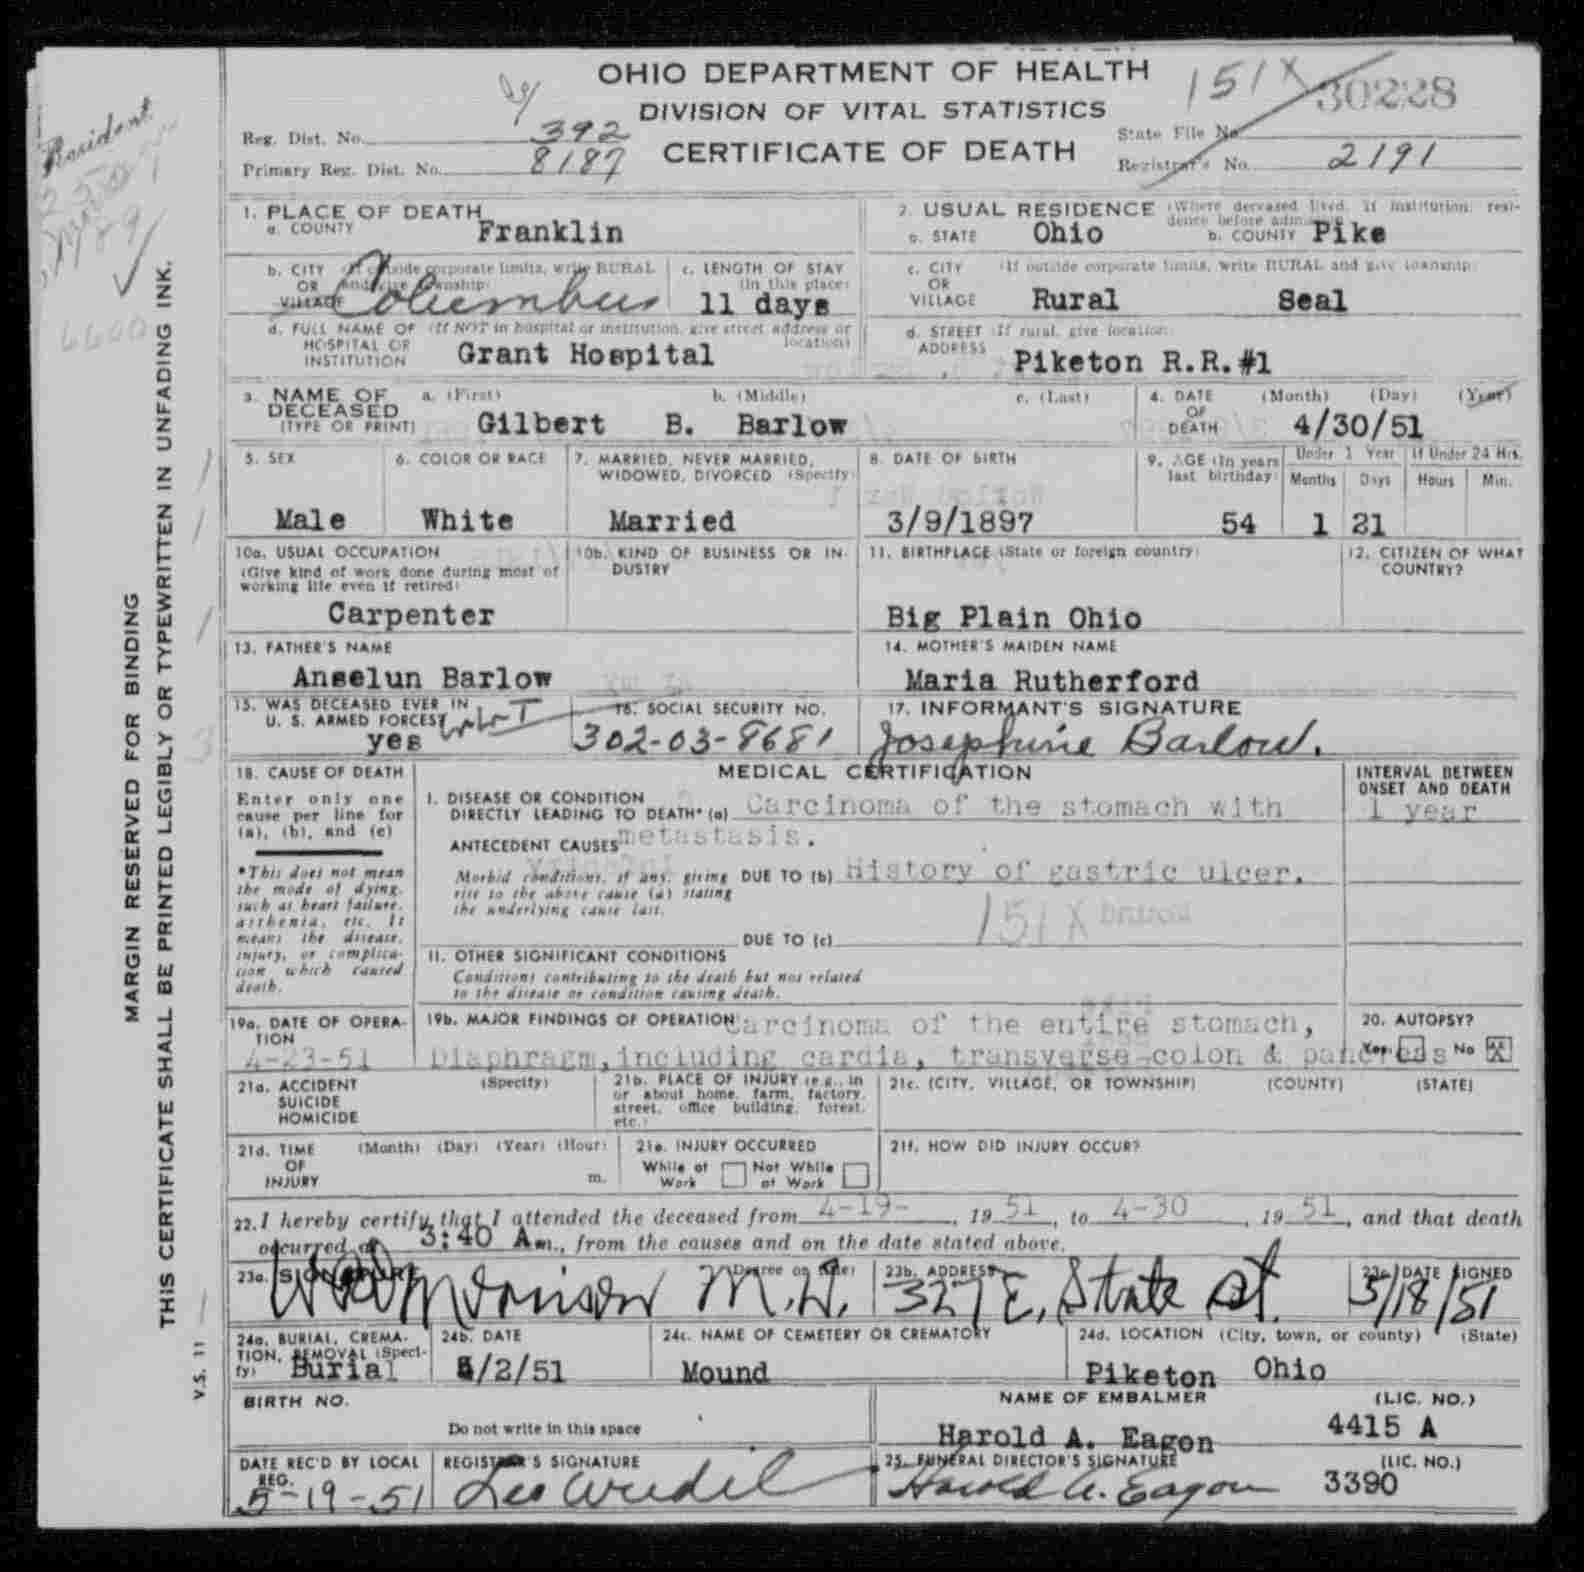 OHIO DEPARTMENT OF HEALTH
DIVISION OF VITAL STATISTICS
CERTIFICATE OF DEATH
151X
30228
Reg. Dist. No. 392
Primary Reg. Dist. No. 8187
State File No.
Registrar's No. 2191
Resident
MARGIN RESERVED FOR BINDING
THIS CERTIFICATE SHALL BE PRINTED LEGIBLY OR TYPEWRITTEN IN UNFADING INK.
V.S. 11
1. PLACE OF DEATH
a. COUNTY Franklin
2. USUAL RESIDENCE (Where deceased lived. If institution: residence before admission)
a. STATE Ohio b. COUNTY Pike
b. CITY (If outside corporate limits, write RURAL and give township)
OR
VILLAGE Columbus
c. LENGTH OF STAY (in this place)
11 days
c. CITY (If outside corporate limits, write RURAL and give township)
OR
VILLAGE Rural Seal
d. FULL NAME OF (If NOT in hospital or institution, give street address or location)
HOSPITAL OR
INSTITUTION Grant Hospital
d. STREET (If rural, give location)
ADDRESS Piketon R.R.#1
3. NAME OF DECEASED (TYPE OR PRINT)
a. (First) b. (Middle) c. (Last)
Gilbert B. Barlow
4. DATE OF DEATH (Month) (Day) (Year)
4/30/51
5. SEX
Male
6. COLOR OR RACE
White
7. MARRIED, NEVER MARRIED, WIDOWED, DIVORCED (Specify)
Married
8. DATE OF BIRTH
3/9/1897
9. AGE (In years last birthday)
54
Under 1 Year If Under 24 Hrs.
Months Days Hours Min.
1 21
10a. USUAL OCCUPATION
(Give kind of work done during most of working life even if retired)
Carpenter
10b. KIND OF BUSINESS OR INDUSTRY
11. BIRTHPLACE (State or foreign country)
Big Plain Ohio
12. CITIZEN OF WHAT COUNTRY?
13. FATHER'S NAME
Anselun Barlow
14. MOTHER'S MAIDEN NAME
Maria Rutherford
15. WAS DECEASED EVER IN U. S. ARMED FORCES?
yes WW-I
16. SOCIAL SECURITY NO.
302-03-8681
17. INFORMANT'S SIGNATURE
Josephine Barlow.
18. CAUSE OF DEATH
Enter only one cause per line for (a), (b), and (c)
*This does not mean the mode of dying, such as heart failure, asthenia, etc. It means the disease, injury, or complication which caused death.
MEDICAL CERTIFICATION
INTERVAL BETWEEN ONSET AND DEATH
I. DISEASE OR CONDITION
DIRECTLY LEADING TO DEATH* (a) Carcinoma of the stomach with
metastasis.
1 year
ANTECEDENT CAUSES
Morbid conditions, if any, giving rise to the above cause (a) stating the underlying cause last.
DUE TO (b) History of gastric ulcer.
151X
DUE TO (c)
II. OTHER SIGNIFICANT CONDITIONS
Conditions contributing to the death but not related to the disease or condition causing death.
19a. DATE OF OPERATION
4-23-51
19b. MAJOR FINDINGS OF OPERATION Carcinoma of the entire stomach,
Diaphragm, including cardia, transverse colon & pancreas
20. AUTOPSY?
Yes No XX
21a. ACCIDENT SUICIDE HOMICIDE (Specify)
21b. PLACE OF INJURY (e.g., in or about home, farm, factory, street, office building, forest, etc.)
21c. (CITY, VILLAGE, OR TOWNSHIP) (COUNTY) (STATE)
21d. TIME OF INJURY (Month) (Day) (Year) (Hour) m.
21e. INJURY OCCURRED
While at Work Not While at Work
21f. HOW DID INJURY OCCUR?
22. I hereby certify that I attended the deceased from 4-19-, 1951, to 4-30, 1951, and that death
occurred at 3:40 Am., from the causes and on the date stated above.
23a. SIGNATURE (Degree or title)
Morrison M.D.
23b. ADDRESS
327 E. State St.
23c. DATE SIGNED
5/18/51
24a. BURIAL, CREMATION, REMOVAL (Specify)
Burial
24b. DATE
5/2/51
24c. NAME OF CEMETERY OR CREMATORY
Mound
24d. LOCATION (City, town, or county) (State)
Piketon Ohio
BIRTH NO.
Do not write in this space
NAME OF EMBALMER (LIC. NO.)
Harold A. Eagon 4415 A
DATE REC'D BY LOCAL REG.
5-19-51
REGISTRAR'S SIGNATURE
25. FUNERAL DIRECTOR'S SIGNATURE (LIC. NO.)
Harold A. Eagon 3390